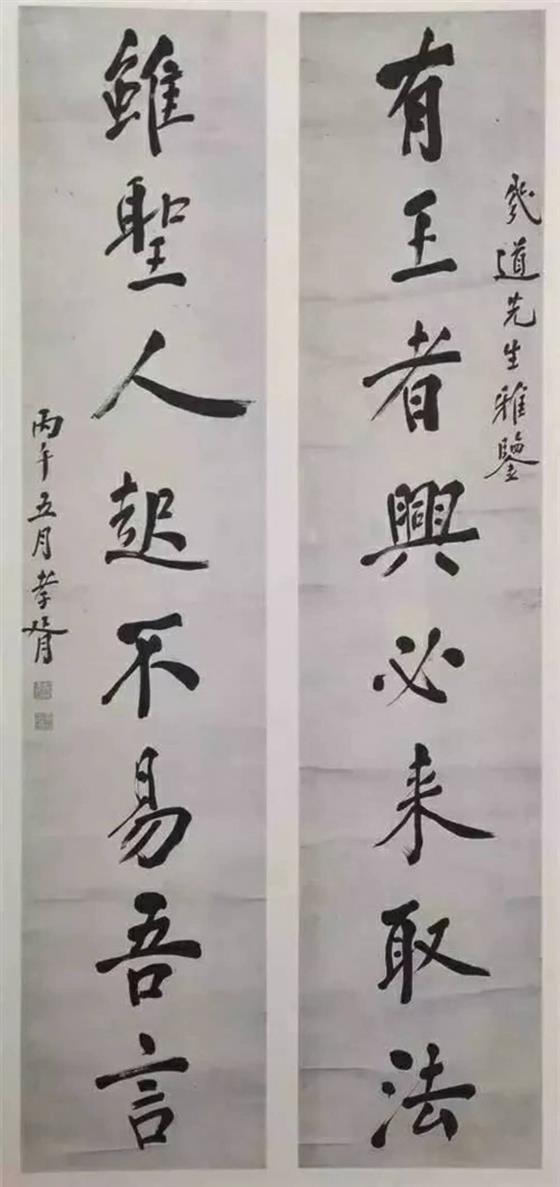 道先生雅鑒
有王者興必来取法
雖聖人起不易吾言
丙午五月孝胥